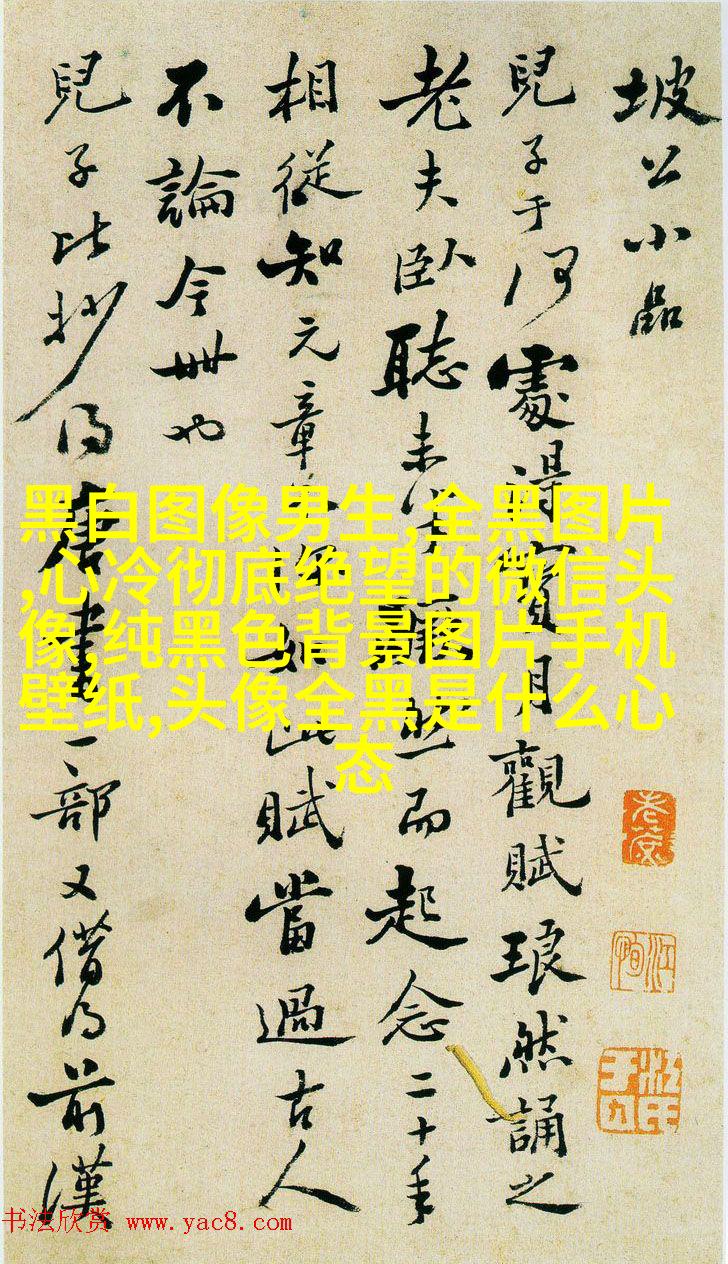 坡公小品
兒子于何處得寶月觀賦琅然誦之
老夫臥聽未半躍然而起念二十年
相從知元章此賦當過古人
不論今世也
兒子比抄得唐書一部又借得前漢
黑白图像男生,全黑图片
,心冷彻底绝望的微信头
像,纯黑色背景图片手机
壁纸,头像全黑是什么心
态
书法欣赏 www.yac8.com